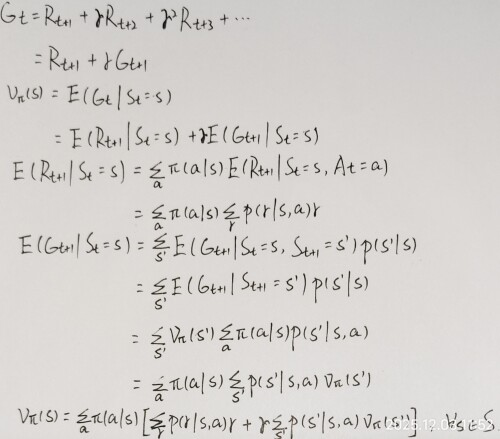 Gt = Rt+1 + γRt+2 + γ²Rt+3 + ⋯
= Rt+1 + γGt+1
vπ(s) = E(Gt|St=s)
= E(Rt+1|St=s) + γE(Gt+1|St=s)
E(Rt+1|St=s) = Σa π(a|s) E(Rt+1|St=s, At=a)
= Σa π(a|s) Σr p(r|s,a)r
E(Gt+1|St=s) = Σs' E(Gt+1|St=s, St+1=s') p(s'|s)
= Σs' E(Gt+1|St+1=s') p(s'|s)
= Σs' vπ(s') Σa π(a|s) p(s'|s,a)
= Σa π(a|s) Σs' p(s'|s,a) vπ(s')
vπ(s) = Σa π(a|s) [Σr p(r|s,a)r + γ Σs' p(s'|s,a) vπ(s')] ∀s∈S